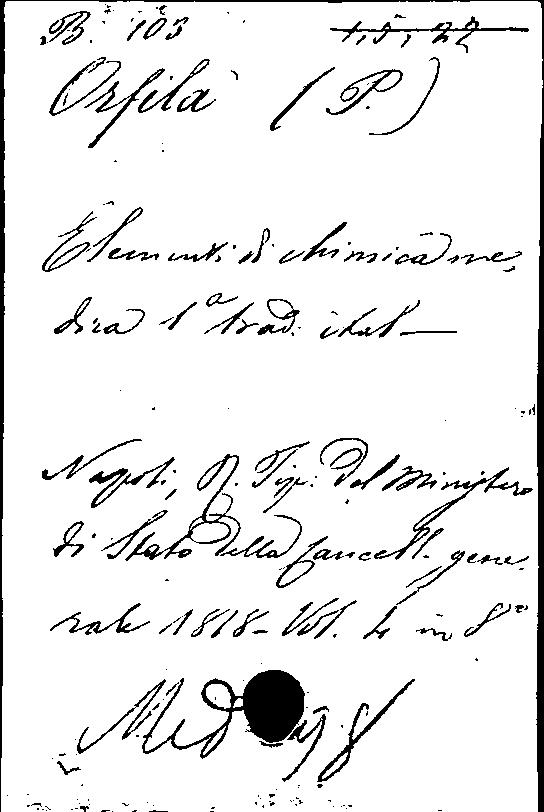 B. 103 1,5,22
Orfila (P.)
Elementi di chimica me-
dica 1ª trad. ital—
Napoli, R. Tip. del Ministero
di Stato della Cancell. gene-
rale 1818 - Vol. 4 in 8°
Med